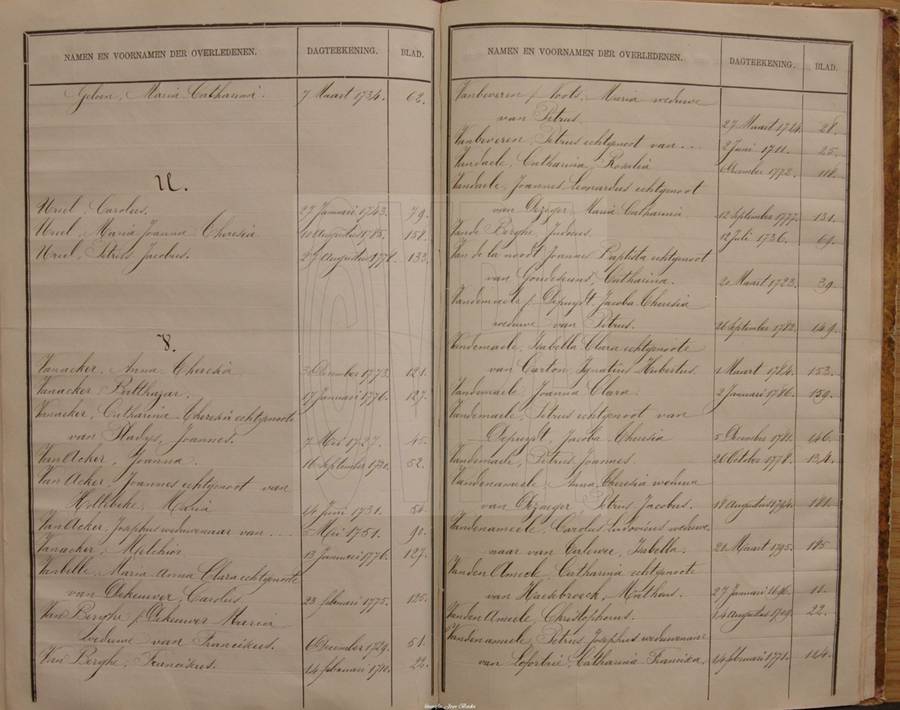 NAMEN EN VOORNAMEN DER OVERLEDENEN. DAGTEEKENING. BLAD.
Geloen, Maria Catharina. 7 Maart 1734. 62.
U.
Uriel, Carolus. 27 Januari 1743. 79.
Uriel, Maria Joanna Theresia 10 Augustus 1785. 158.
Uriel, Petrus Jacobus. 27 Augustus 1778. 133.
V.
Vanacker, Anna Theresia 3 December 1773. 121.
Vanacker, Balthazar. 17 Januari 1776. 127.
Vanacker, Catharina Theresia echtgenoote
van Stadys, Joannes. 7 Mei 1727. 45.
Van Acker, Joanna. 16 September 1730. 52.
Van Acker, Joannes echtgenoot van
Hollebeke, Maria 14 Juni 1731. 54.
Van Acker, Josephus weduwenaar van .... 5 Mei 1751. 90.
Vanacker, Melchior. 13 Januari 1776. 127.
Vanbelle, Maria Anna Clara echtgenoote
van Dekeuwer, Carolus. 23 Februari 1775. 125.
Van Berghe, / Dekeuwer Maria
Weduwe van Franciskus. 6 December 1729. 51.
Van Berghe, Franciskus. 14 Februari 1710. 22.
NAMEN EN VOORNAMEN DER OVERLEDENEN. DAGTEEKENING. BLAD.
Vanbeveren / Loots, Maria weduwe
van Petrus. 27 Maart 1724. 28.
Vanbeveren, Petrus echtgenoot van ... 2 Juni 1711. 25.
Vandaele, Catharina Rosalia December 1772. 118.
Vandaele, Joannes Leonardus echtgenoot
van Dezeger, Maria Catharina 12 September 1777. 131.
Vande Berghe, Judocus. 12 Juli 1736. 69.
Van de la noodt Joannes Baptista echtgenoot
van Catharina. 20 Maart 1723. 39.
Vandemaele / Depuydt, Jacoba Theresia
weduwe van Petrus. 26 September 1782. 149.
Vandemaele, Isabella Clara echtgenoote
van Carton, Ignatius Hubertus 1 Maart 1784. 153.
Vandemaele, Joanna Clara. 2 Januari 1786. 159.
Vandemaele, Petrus echtgenoot van
Depuydt, Jacoba Theresia 5 December 1781. 146.
Vandemaele, Petrus Joannes. 26 October 1778. 134.
Vandenameele, Anna Theresia weduwe
van Dezaeger, Petrus Jacobus. 18 Augustus 1794. 181.
Vandenameele, Carolus Ludovicus weduwe
naar van Carlewe, Isabella. 20 Maart 1795. 185
Vanden Ameele, Catharina echtgenoote
van Haesebroeck, Matheus. 27 Januari 1696. 11.
Vanden Ameele, Christophorus. 14 Augustus 1709. 22.
Vandenameele, Petrus Josephus weduwenaar
van Lefortrie, Catharina Franciska. 14 Februari 1771. 114.